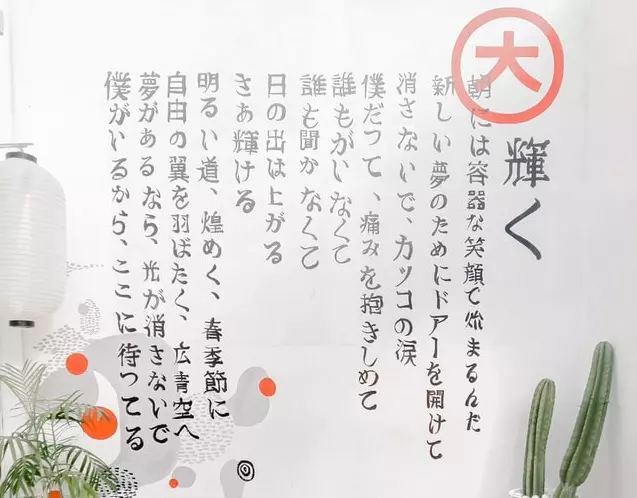 大
輝く
朝には容器な笑顔で始まるんだ
新しい夢のためにドアーを開けて
消さないで、カツコの涙
僕だつて、痛みを抱きしめて
誰もがいなくて
誰も聞かなくて
日の出は上がる
さあ輝ける
明るい道、煌めく、春季節に
自由の翼を羽ばたく、広青空へ
夢があるなら、光が消さないで
僕がいるから、ここに待つてる